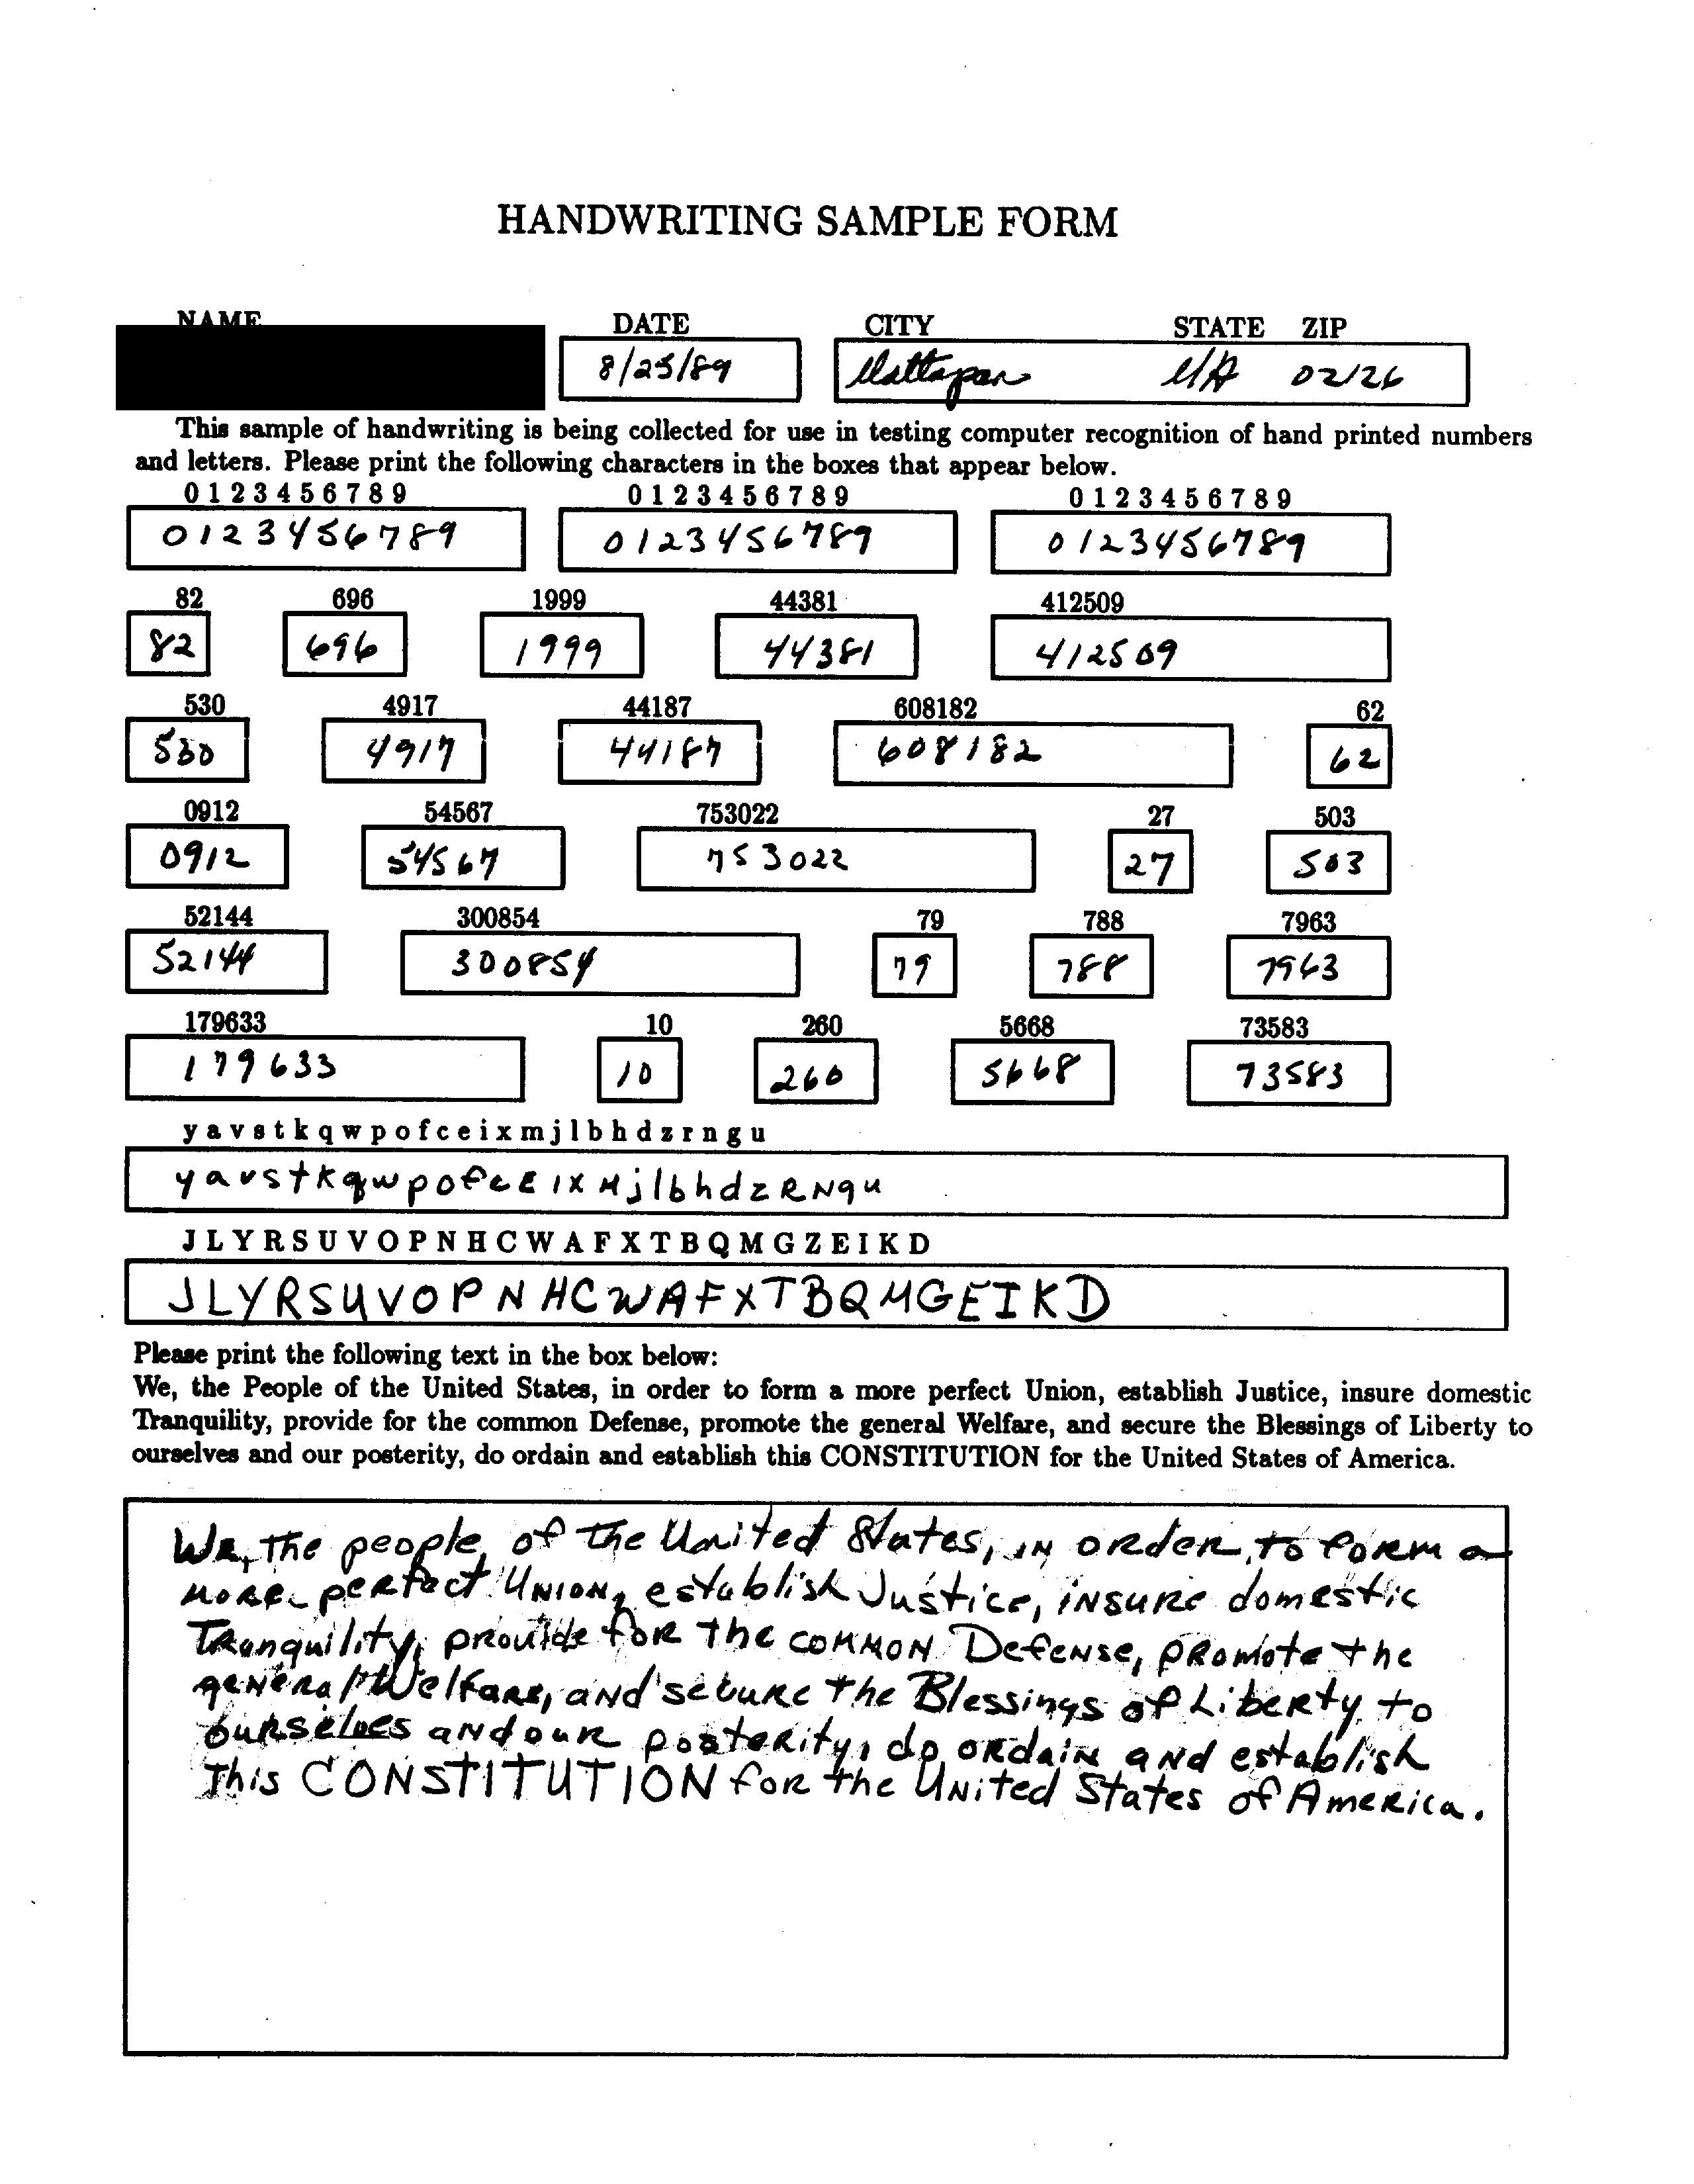 HANDWRITING SAMPLE FORM
NAME DATE CITY STATE ZIP
8/25/89 Mattapan MA 02126
This sample of handwriting is being collected for use in testing computer recognition of hand printed numbers
and letters. Please print the following characters in the boxes that appear below.
0 1 2 3 4 5 6 7 8 9 0 1 2 3 4 5 6 7 8 9 0 1 2 3 4 5 6 7 8 9
0123456789 0123456789 0123456789
82 696 1999 44381 412509
82 696 1999 44381 412509
530 4917 44187 608182 62
530 4917 44187 608182 62
0912 54567 753022 27 503
0912 54567 753022 27 503
52144 300854 79 788 7963
52144 300854 79 788 7963
179633 10 260 5668 73583
179633 10 260 5668 73583
y a v s t k q w p o f c e i x m j l b h d z r n g u
y a v s t k q w p o f c E i x M j l b h d z R N g u
J L Y R S U V O P N H C W A F X T B Q M G Z E I K D
J L Y R S U V O P N H C W A F X T B Q M G E I K D
Please print the following text in the box below:
We, the People of the United States, in order to form a more perfect Union, establish Justice, insure domestic
Tranquility, provide for the common Defense, promote the general Welfare, and secure the Blessings of Liberty to
ourselves and our posterity, do ordain and establish this CONSTITUTION for the United States of America.
We, the people of the United States, in order to form a
more perfect Union, establish Justice, insure domestic
Tranquility, provide for the common Defense, promote the
general Welfare, and secure the Blessings of Liberty to
ourselves and our posterity, do ordain and establish
This CONSTITUTION for the United States of America.